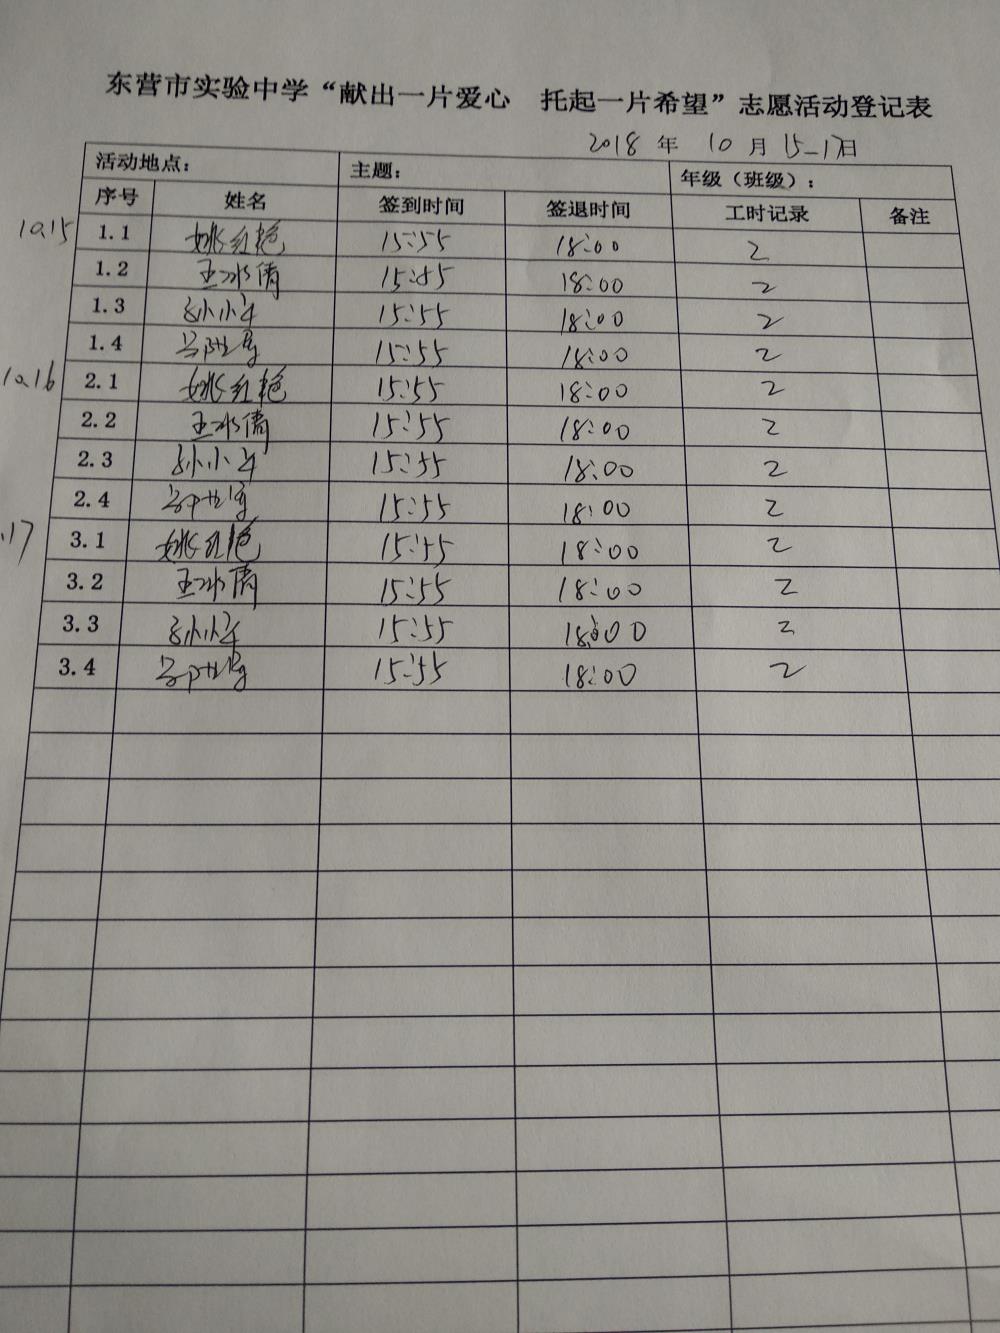 东营市实验中学“献出一片爱心 托起一片希望”志愿活动登记表
2018 年 10 月 15-17日
活动地点： 主题： 年级（班级）：
序号 姓名 签到时间 签退时间 工时记录 备注
10.15 1.1 姚红艳 15:55 18:00 2
1.2 王冰倩 15:55 18:00 2
1.3 孙小 15:55 18:00 2
1.4 15:55 18:00 2
10.16 2.1 姚红艳 15:55 18:00 2
2.2 王冰倩 15:55 18:00 2
2.3 孙小 15:55 18:00 2
2.4 15:55 18:00 2
.17 3.1 姚红艳 15:55 18:00 2
3.2 王冰倩 15:55 18:00 2
3.3 孙小 15:55 18:00 2
3.4 15:55 18:00 2